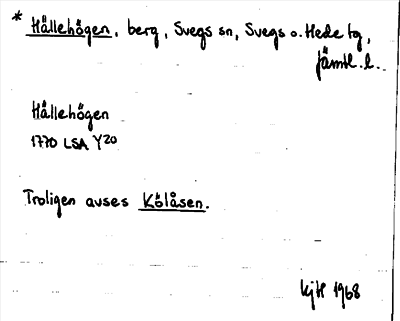 * Hållehögen, berg, Svegs sn, Svegs o. Hede tg,
Jämtl. l.
Hållehögen
1770 LSA Y20
Troligen avses Kölåsen.
KjH 1968